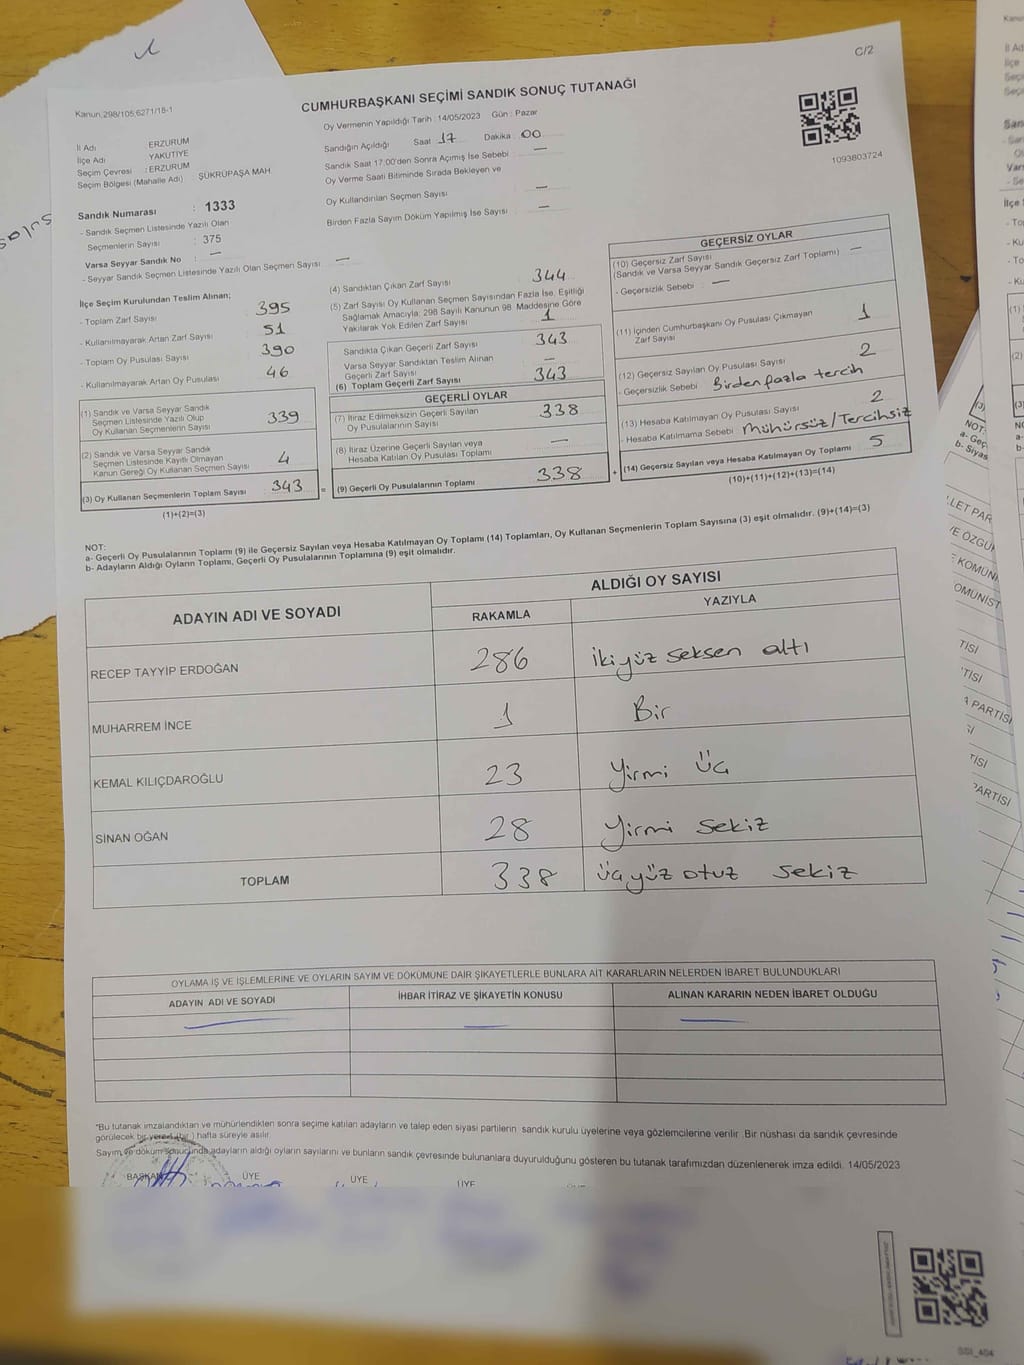 C/2
Kanun;298/105;6271/18-1
CUMHURBAŞKANI SEÇİMİ SANDIK SONUÇ TUTANAĞI
Oy Vermenin Yapıldığı Tarih : 14/05/2023 Gün : Pazar
Sandığın Açıldığı Saat 17 Dakika : 00
Sandık Saat 17:00'den Sonra Açımış İse Sebebi : —
Oy Verme Saati Bitiminde Sırada Bekleyen ve
Oy Kullandırılan Seçmen Sayısı : —
Birden Fazla Sayım Döküm Yapılmış İse Sayısı : —
1093803724
İl Adı ERZURUM
İlçe Adı YAKUTİYE
Seçim Çevresi : ERZURUM
Seçim Bölgesi (Mahalle Adı) : ŞÜKRÜPAŞA MAH.
Sandık Numarası : 1333
- Sandık Seçmen Listesinde Yazılı Olan
Seçmenlerin Sayısı : 375
Varsa Seyyar Sandık No : —
- Seyyar Sandık Seçmen Listesinde Yazılı Olan Seçmen Sayısı : —
İlçe Seçim Kurulundan Teslim Alınan;
- Toplam Zarf Sayısı 395
- Kullanılmayarak Artan Zarf Sayısı 51
- Toplam Oy Pusulası Sayısı 390
- Kullanılmayarak Artan Oy Pusulası 46
(1) Sandık ve Varsa Seyyar Sandık
Seçmen Listesinde Yazılı Olup
Oy Kullanan Seçmenlerin Sayısı 339
(2) Sandık ve Varsa Seyyar Sandık
Seçmen Listesinde Kayıtlı Olmayan
Kanun Gereği Oy Kullanan Seçmen Sayısı 4
(3) Oy Kullanan Seçmenlerin Toplam Sayısı 343 =
(1)+(2)=(3)
(4) Sandıktan Çıkan Zarf Sayısı 344
(5) Zarf Sayısı Oy Kullanan Seçmen Sayısından Fazla İse, Eşitliği
Sağlamak Amacıyla; 298 Sayılı Kanunun 98. Maddesine Göre
Yakılarak Yok Edilen Zarf Sayısı 1
Sandıkta Çıkan Geçerli Zarf Sayısı 343
Varsa Seyyar Sandıktan Teslim Alınan
Geçerli Zarf Sayısı —
(6) Toplam Geçerli Zarf Sayısı 343
GEÇERLİ OYLAR
(7) İtiraz Edilmeksizin Geçerli Sayılan
Oy Pusulalarının Sayısı 338
(8) İtiraz Üzerine Geçerli Sayılan veya
Hesaba Katılan Oy Pusulası Toplamı —
(9) Geçerli Oy Pusulalarının Toplamı 338 +
GEÇERSİZ OYLAR
(10) Geçersiz Zarf Sayısı
(Sandık ve Varsa Seyyar Sandık Geçersiz Zarf Toplamı) —
- Geçersizlik Sebebi : —
(11) İçinden Cumhurbaşkanı Oy Pusulası Çıkmayan
Zarf Sayısı 1
(12) Geçersiz Sayılan Oy Pusulası Sayısı 2
- Geçersizlik Sebebi : Birden fazla tercih
(13) Hesaba Katılmayan Oy Pusulası Sayısı 2
- Hesaba Katılmama Sebebi : Mühürsüz/Tercihsiz
(14) Geçersiz Sayılan veya Hesaba Katılmayan Oy Toplamı 5
(10)+(11)+(12)+(13)=(14)
NOT:
a- Geçerli Oy Pusulalarının Toplamı (9) ile Geçersiz Sayılan veya Hesaba Katılmayan Oy Toplamı (14) Toplamları, Oy Kullanan Seçmenlerin Toplam Sayısına (3) eşit olmalıdır. (9)+(14)=(3)
b- Adayların Aldığı Oyların Toplamı, Geçerli Oy Pusulalarının Toplamına (9) eşit olmalıdır.
ADAYIN ADI VE SOYADI ALDIĞI OY SAYISI
RAKAMLA YAZIYLA
RECEP TAYYİP ERDOĞAN 286 iki yüz seksen altı
MUHARREM İNCE 1 Bir
KEMAL KILIÇDAROĞLU 23 Yirmi Üç
SİNAN OĞAN 28 Yirmi Sekiz
TOPLAM 338 üç yüz otuz sekiz
OYLAMA İŞ VE İŞLEMLERİNE VE OYLARIN SAYIM VE DÖKÜMÜNE DAİR ŞİKAYETLERLE BUNLARA AİT KARARLARIN NELERDEN İBARET BULUNDUKLARI
ADAYIN ADI VE SOYADI İHBAR İTİRAZ VE ŞİKAYETİN KONUSU ALINAN KARARIN NEDEN İBARET OLDUĞU
"Bu tutanak imzalandıktan ve mühürlendikten sonra seçime katılan adayların ve talep eden siyasi partilerin sandık kurulu üyelerine veya gözlemcilerine verilir .Bir nüshası da sandık çevresinde
görülecek bir yere 1 (bir ) hafta süreyle asılır.
Sayım ve döküm sonucunda adayların aldığı oyların sayılarını ve bunların sandık çevresinde bulunanlara duyurulduğunu gösteren bu tutanak tarafımızdan düzenlenerek imza edildi. 14/05/2023
BAŞKAN ÜYE ÜYE ÜYE